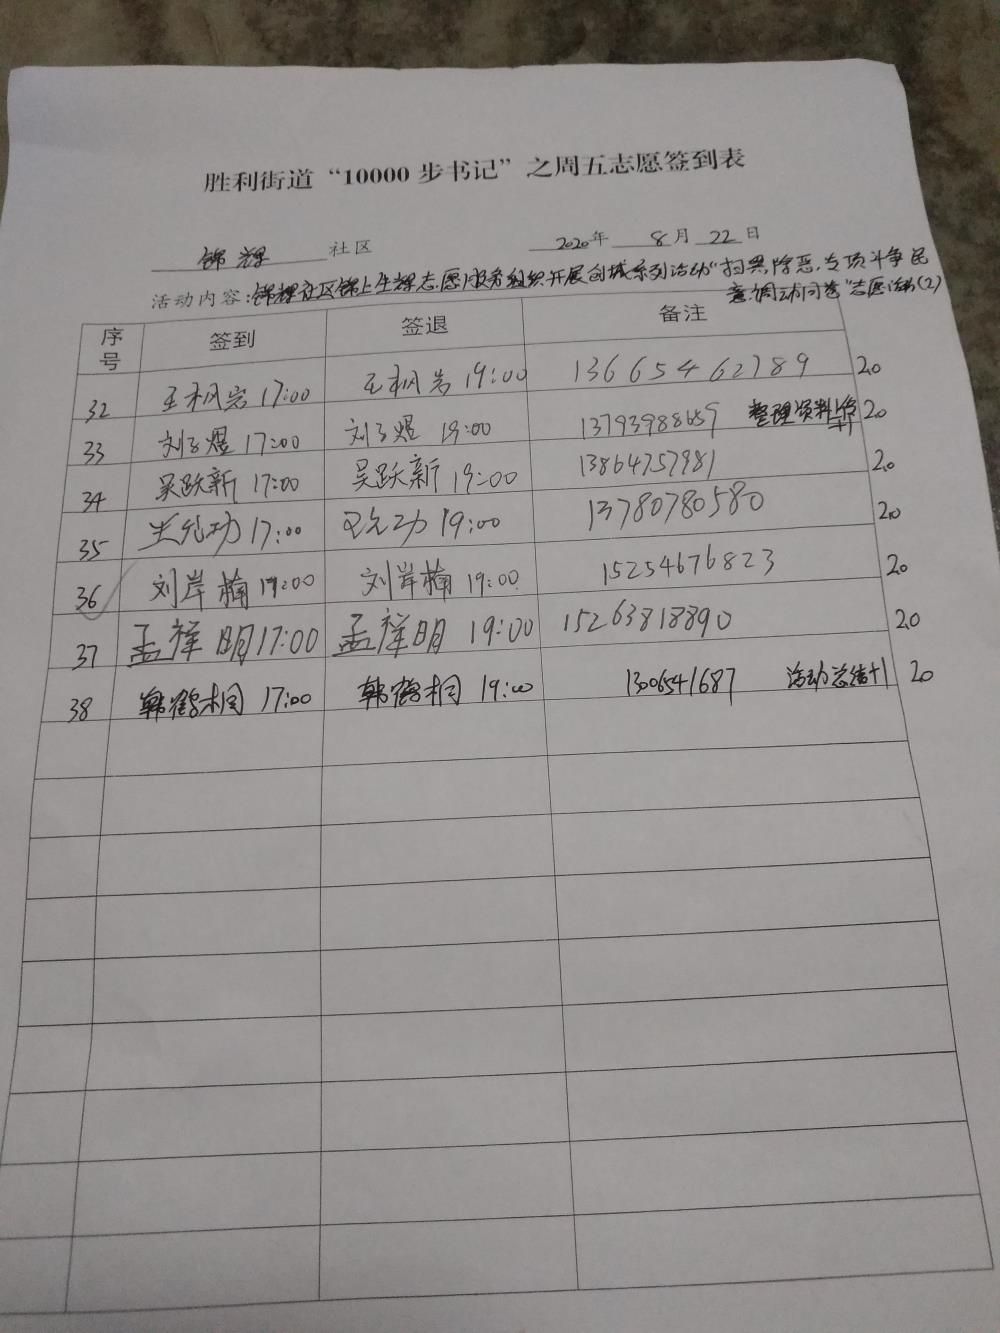 胜利街道“10000步书记”之周五志愿签到表
锦辉 社区 2020年 8月 22日
活动内容：锦辉社区锦上生辉志愿服务组织开展创城系列活动“扫黑除恶，专项斗争民
意调动问卷”志愿活动(2)
序号 签到 签退 备注
32 王枫岩 17:00 王枫岩 19:00 13665462789 20
33 刘子煜 17:00 刘子煜 19:00 13793988659 整理资料 20
34 吴跃新 17:00 吴跃新 19:00 13864757981 20
35 17:00 19:00 13780780580 20
36 刘岸楠 19:00 刘岸楠 19:00 15254676823 20
37 孟祥明 17:00 孟祥明 19:00 15263818890 20
38 韩鹤桐 17:00 韩鹤桐 19:00 1306541687 活动总结+1 20